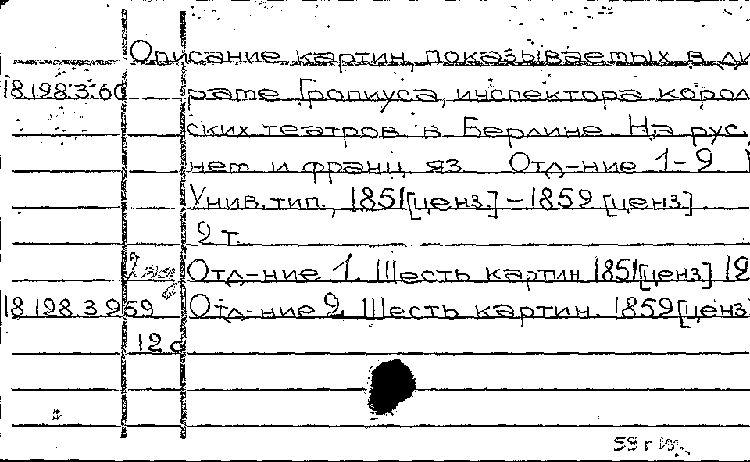 Описание картин, показываемых в ди
18 198.3.60 раме Гропиуса, инспектора корол
ских театров в Берлине. На рус.,
нем и франц. яз. Отд-ние 1-2
Унив. тип., 1851[ценз.] - 1859 [ценз.].
2 т.
Отд-ние 1. Шесть картин 1851[ценз] 12
18 198.3.259 Отд-ние 2. Шесть картин. 1859[ценз
12 с
58 г